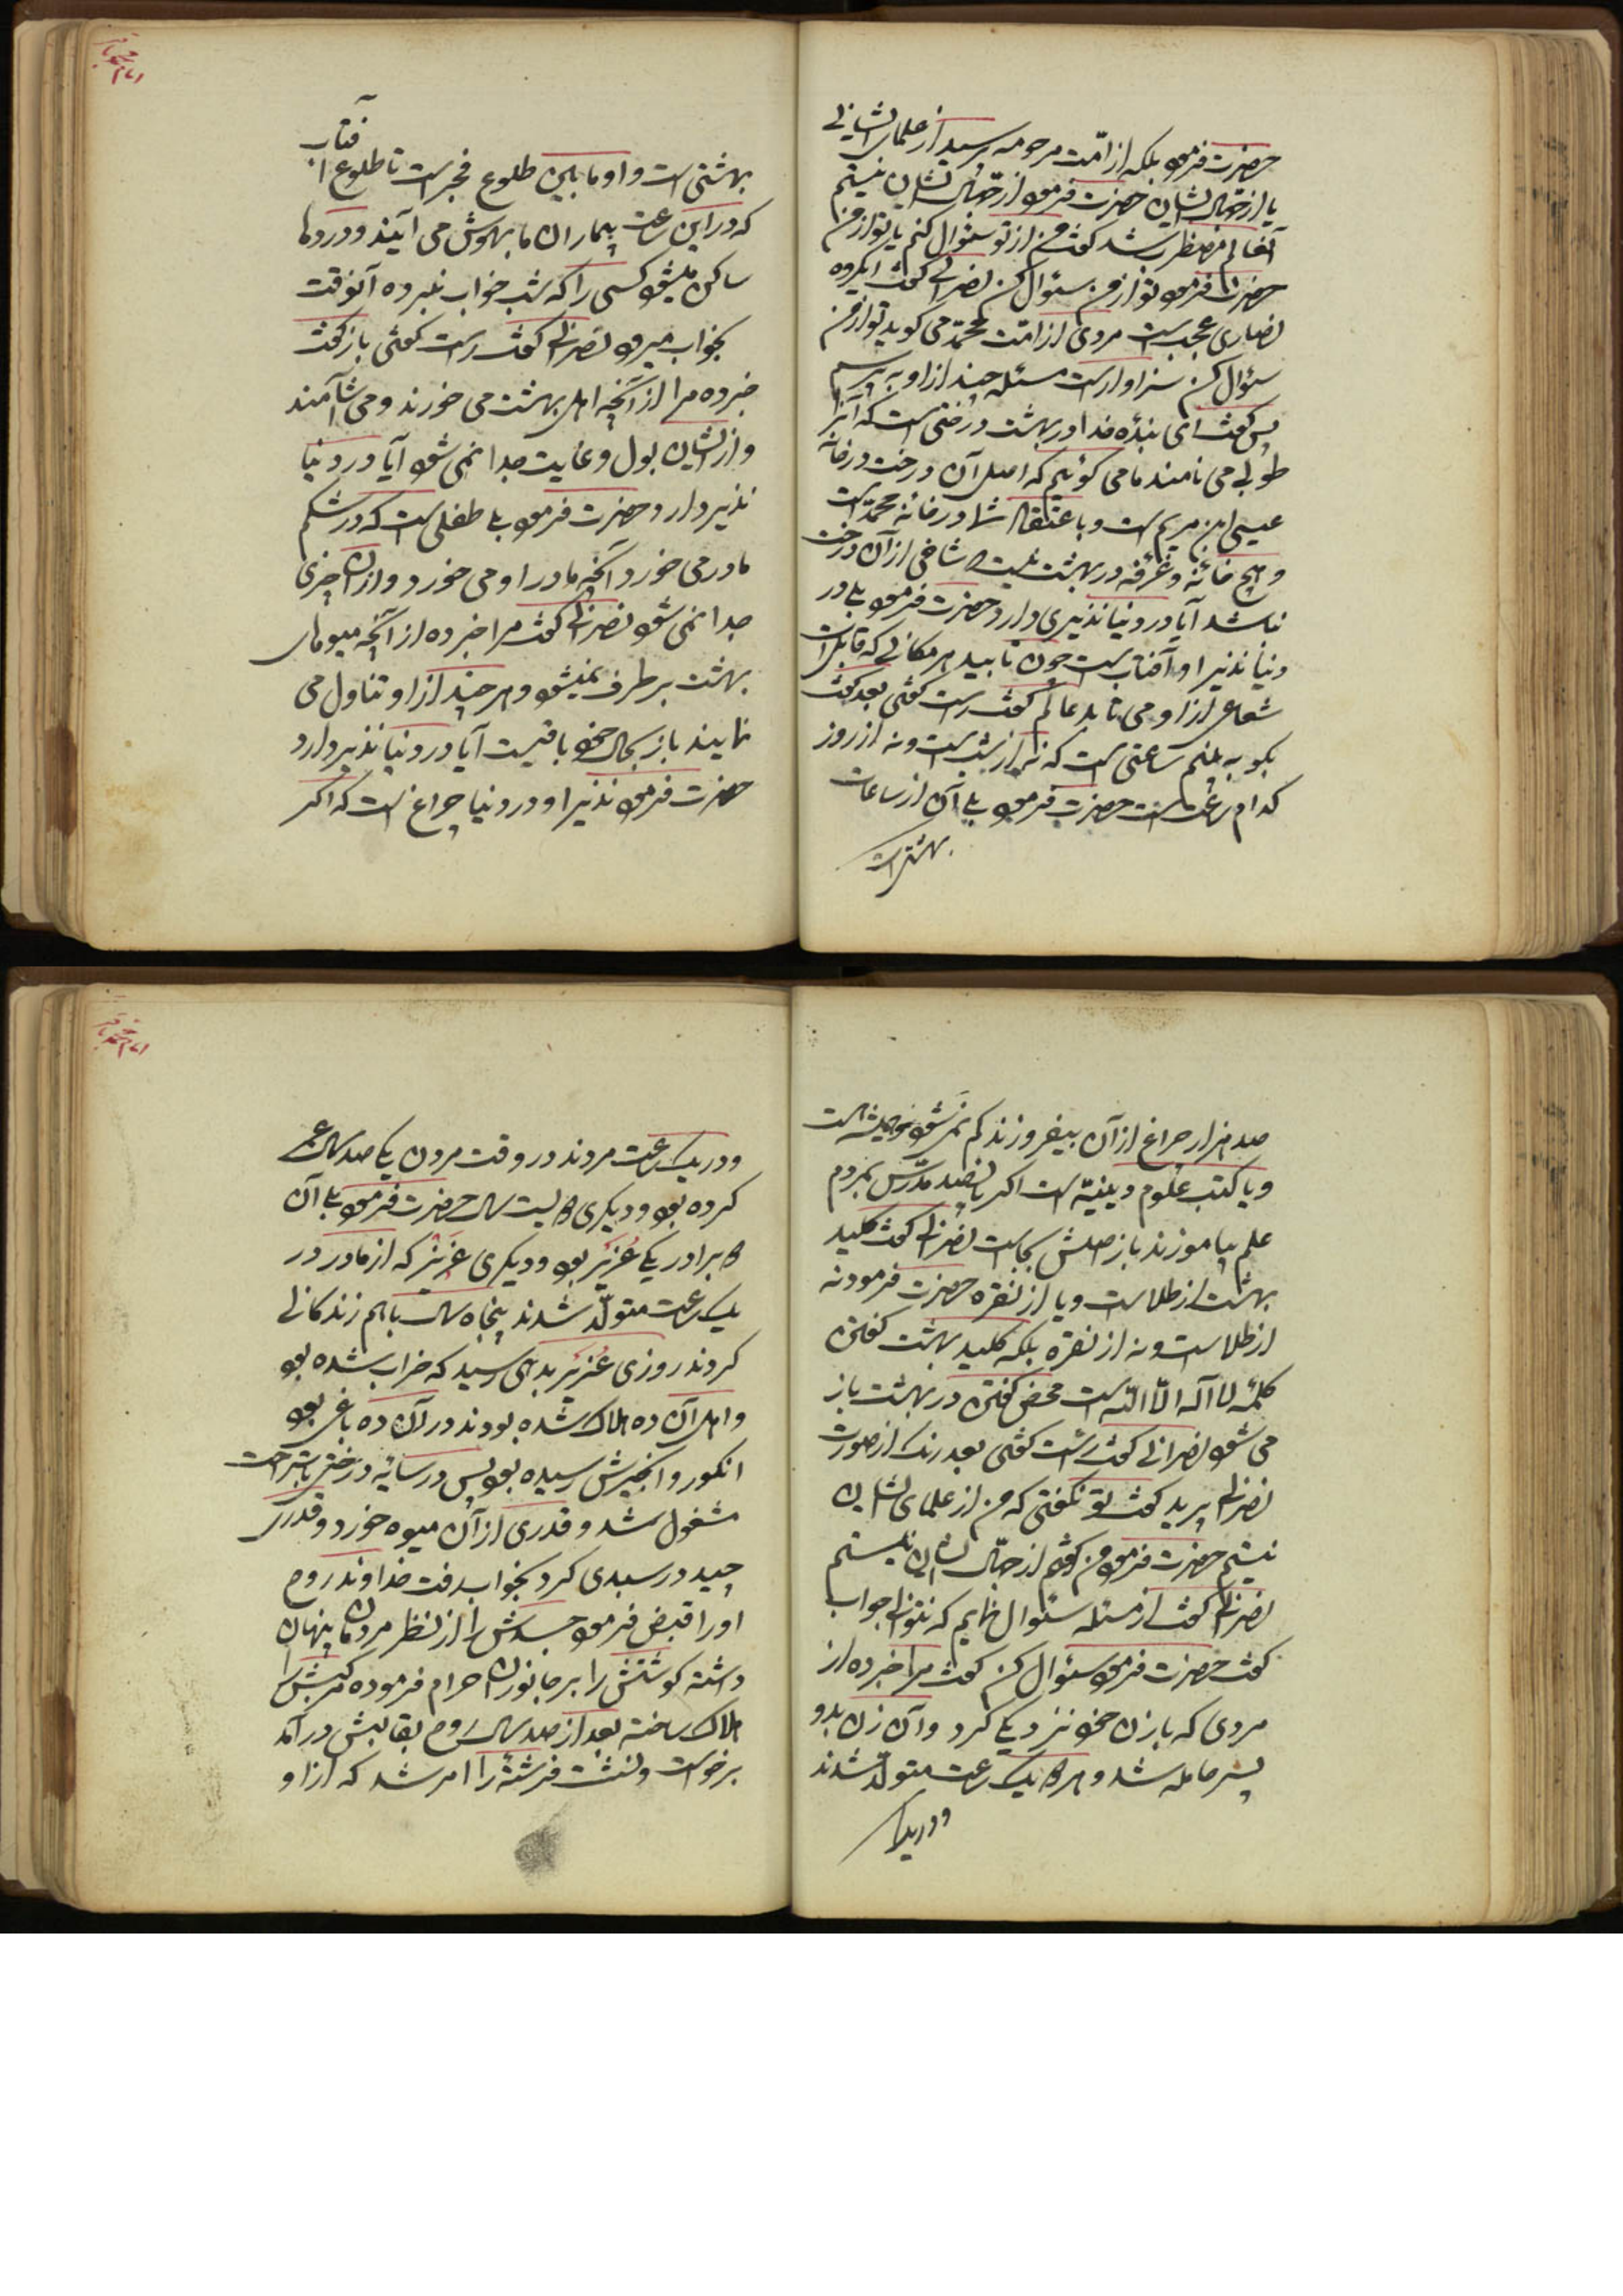 حضرت فرمود بلکه از امّت مرحومه پرسید از علمای ایشانی
یا از جهّال ایشان حضرت فرمود از جهّال ایشان نیستم
آنعالم مضطرب شد گفت من از تو سئوال کنم یا تو از من
حضرت فرمود تو از من سئوال کن نصرانی گفت ایگروه
نصاری عجب است مردی از امّت محمّد می گوید تو از من
سئوال کن سزاوار است مسئله چند از او بپرسم
پس گفت ای بندهٔ خدا در بهشت درختی است که آنرا
طوبی می نامند ما می گوئیم که اصل آن درخت در خانهٔ
عیسی ابن مریم است و باعتقاد شما در خانهٔ محمّد است
و هیچ خانهٔ و غرفه در بهشت نیست که شاخی از آن درخت
نباشد آیا در دنیا نذیری دارد حضرت فرمود بلی در
دنیا نذیر او آفتاب است چون تابید هر مکانی که قابل است
شعاعی از او می تابد عالم گفت راست گفتی بعد گفت
بگو به بینم ساعتی است که نه از شب است و نه از روز
کدام ساعت است حضرت فرمود بلی آن از ساعات
بهشتی است
محمد باقر
۱۲۷۱
بهشتی است و او مابین طلوع فجر است تا طلوع آفتاب
که در این ساعت بیماران ما بهوش می آیند و دردها
ساکن میشود کسی را که شب خواب نبرده آنوقت
بخواب میرود نصرانی گفت راست گفتی باز گفت
خبر ده مرا از آنچه اهل بهشت می خورند و می آشامند
و از ایشان بول و غایت جدا نمی شود آیا در دنیا
نذیر دارد حضرت فرمود بلی طفلی است که در شکم
مادر می خورد آنچه مادر او می خورد و از آن چیزی
جدا نمی شود نصرانی گفت مرا خبر ده از آنچه میوهای
بهشت بر طرف نمیشود و هر چند از او تناول می
نمایند باز بحال خود باقیست آیا در دنیا نذیر دارد
حضرت فرمود نذیر او در دنیا چراغ است که اگر
صد هزار چراغ از آن بیفروزند کم نمی شود
و یا کتب علوم دینیّه است اگر پانصد مدرّس بمردم
علم بیاموزند باز اصلش بجا است نصرانی گفت کلید
بهشت از طلا است و یا از نقره حضرت فرمود نه
از طلا است و نه از نقره بلکه کلید بهشت گفتن
کلمهٔ لا اله الّا اللّه است محض گفتن در بهشت باز
می شود نصرانی گفت راست گفتی بعد رنگ از صورت
نصرانی پرید گفت تو نگفتی که من از علمای ایشان
نیستم حضرت فرمود من گفتم از جهّال ایشان نیستم
نصرانی گفت از مسئله سئوال نمایم که نتوانی جواب
گفت حضرت فرمود سئوال کن گفت مرا خبر ده از
مردی که با زن خود نزدیکی کرد و آن زن بدو
پسر حامله شد و هر دو یک ساعت متولّد شدند
و در یک
محمد باقر
۱۲۷۱
و در یک ساعت مردند در وقت مردن یکی صد سال عمر
کرده بود و دیگری دویست سال حضرت فرمود بلی آن
دو برادر یکی عُزیر بود و دیگری عزیز که از مادر در
یک ساعت متولّد شدند پنجاه سال با هم زندگانی
کردند روزی عُزیر بدهی رسید که خراب شده بود
و اهل آن ده هلاک شده بودند در آن ده باغی بود
انگور و انجیرش رسیده بود پس در سایهٔ درختی باستراحت
مشغول شد و قدری از آن میوه خورد و قدری
چید در سبدی کرد بخواب رفت خداوند روح
او را قبض فرمود جسدش را از نظر مردمان پنهان
داشته گوشتش را بر جانوران حرام فرموده مرکبش را
هلاک ساخته بعد از صد سال روح بقالبش در آمد
برخواست و نشست فرشتهٔ را امر شد که از او